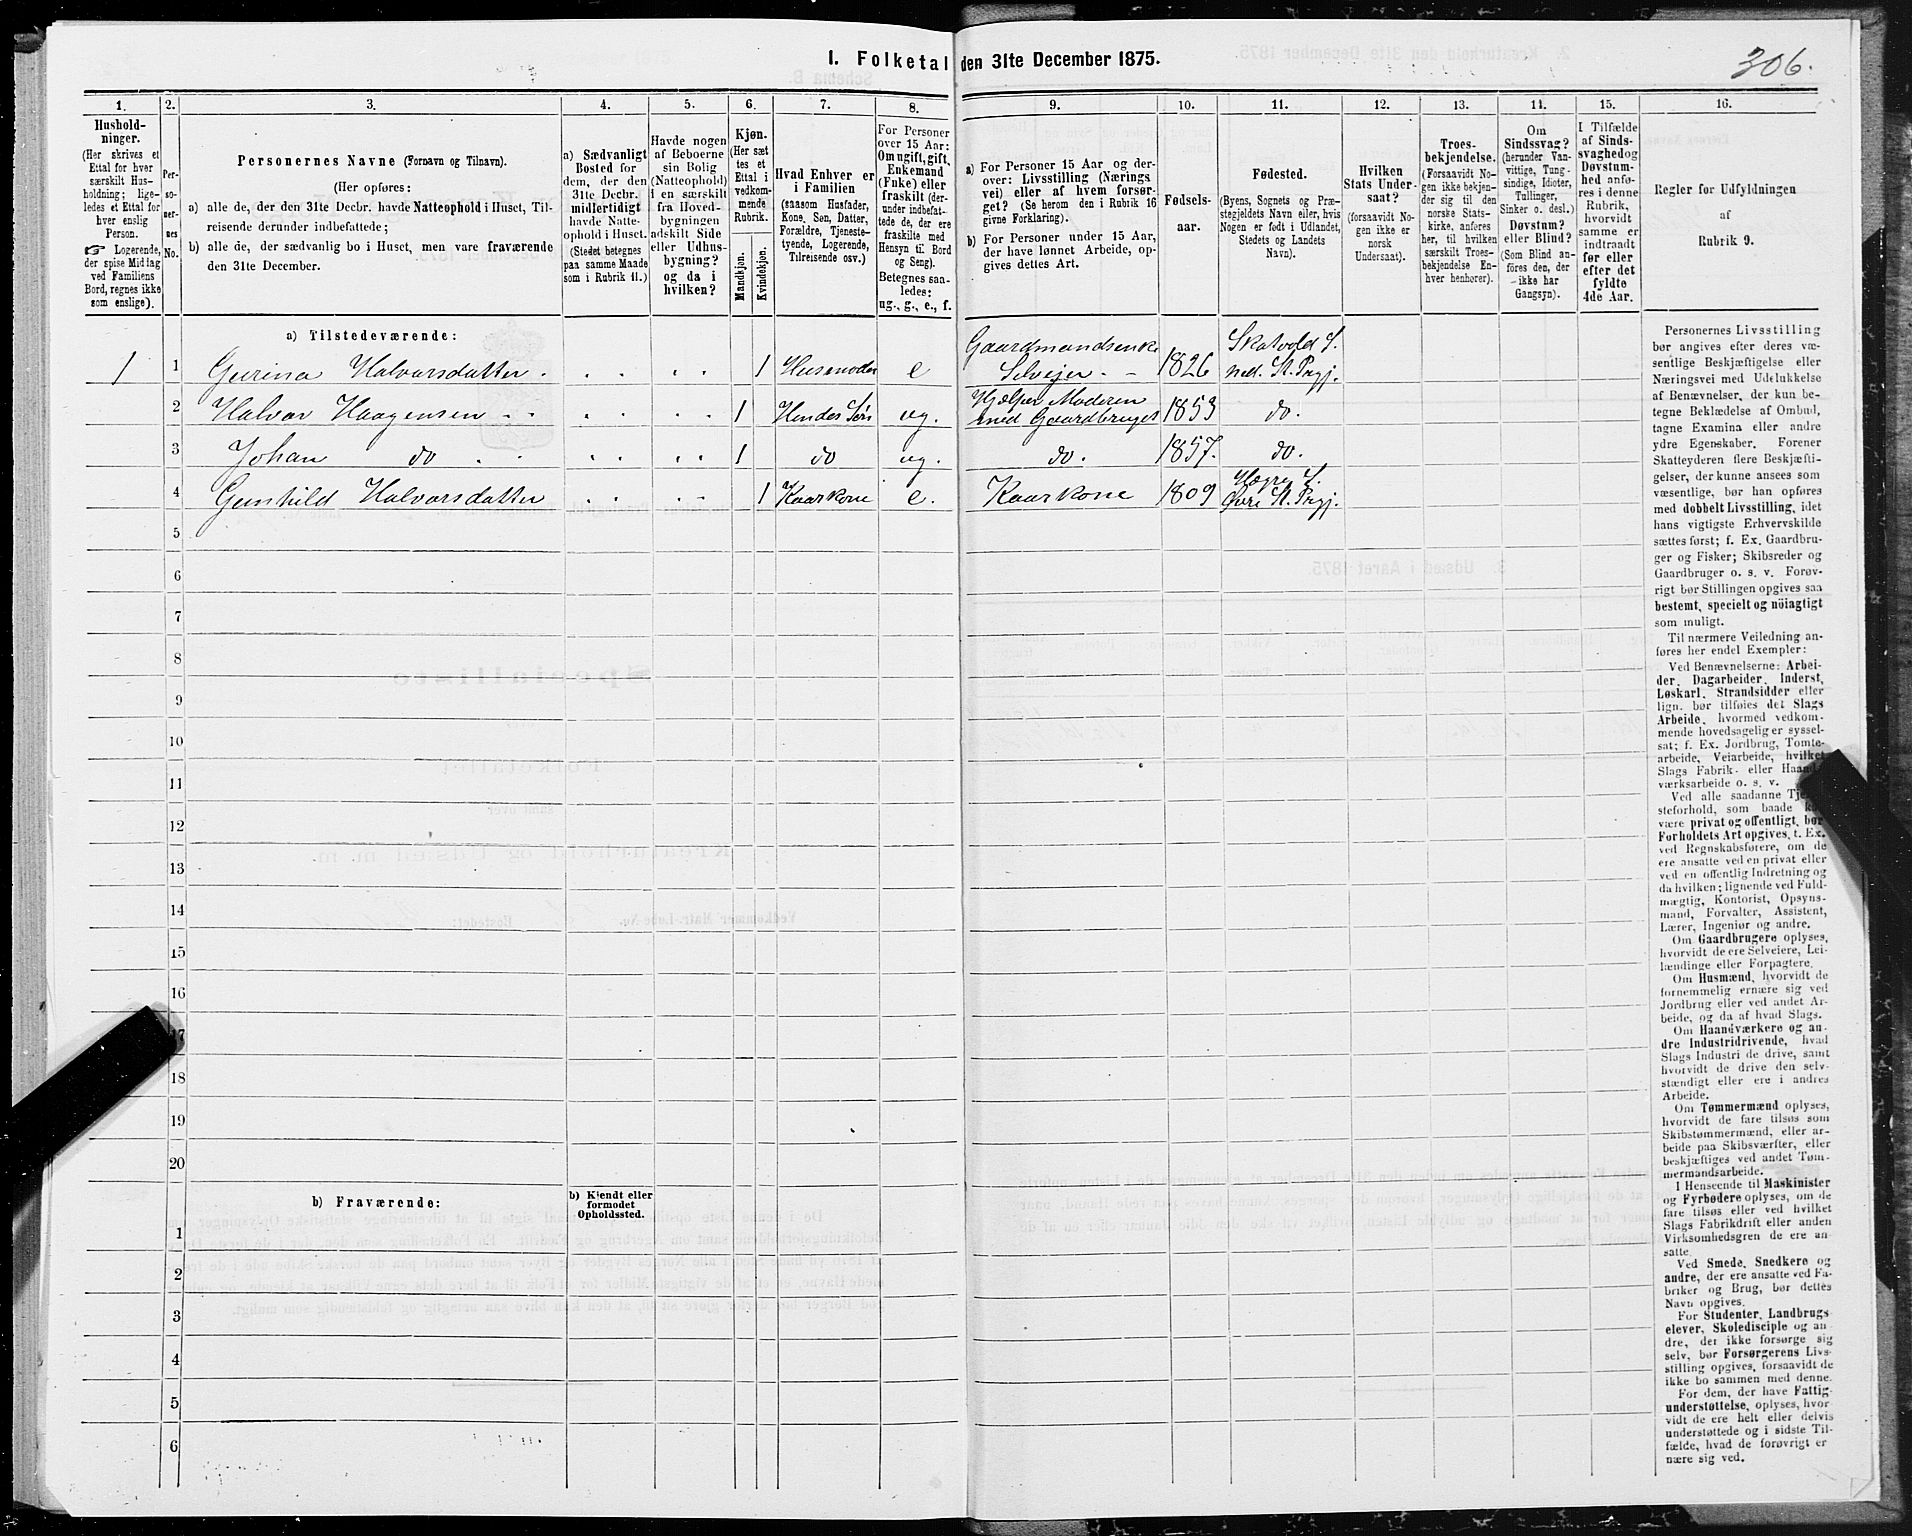 1. Folketal den 31te December 1875.
306.
1.
2.
3.
4.
5.
6.
7.
8.
9.
10.
11.
12.
13.
14.
15.
16.
Hushold-
ninger.
(Her skrives et
Ettal for hver
særskilt Hus-
holdning; lige-
ledes et Ettal for
hver enslig
Person.
☞ Logerende,
der spise Middag
ved Familiens
Bord, regnes ikke
som enslige).
Per-
so-
ner-
nes
No.
Personernes Navne (Fornavn og Tilnavn).
(Her opføres:
a) alle de, der den 31te Decbr. havde Natteophold i Huset, Til-
reisende derunder indbefattede;
b) alle de, der sædvanlig bo i Huset, men vare fraværende
den 31te December.
a) Sædvanligt
Bosted for
dem, der den
31te Decbr.
midlertidigt
havde Natte-
ophold i Huset.
(Stedet betegnes
paa samme Maade
som i Rubrik 11.)
Havde nogen
af Beboerne
sin Bolig
(Natteophold)
i en særskilt
fra Hoved-
bygningen
adskilt Side
eller Udhus-
bygning?
og da i
hvilken?
Kjøn.
(Her sæt
tes et
Ettal i
vedkom-
mende
Rubrik.
Mandkjøn.
Kvindekjøn.
Hvad Enhver er
i Familien
(saasom Husfader,
Kone, Søn, Datter,
Forældre, Tjeneste-
tyende, Logerende,
Tilreisende osv.)
For Personer
over 15 Aar:
Om ugift, gift,
Enkemand
(Enke) eller
fraskilt (der-
under indbefat-
tede de, der ere
fraskilte med
Hensyn til Bord
og Seng).
Betegnes saa-
ledes:
ug., g., e., f.
a) For Personer 15 Aar og der-
over: Livsstilling (Nærings
vei) eller af hvem forsør-
get? (Se herom den i Rubrik 16
givne Forklaring).
b) For Personer under 15 Aar,
der have lønnet Arbeide, op-
gives dettes Art.
Fødsels-
aar.
Fødested.
(Byens, Sognets og Præ-
stegjeldets Navn eller, hvis
Nogen er født i Udlandet,
Stedets og Landets
Navn).
Hvilken
Stats Under-
saat?
(forsaavidt No-
gen ikke er
norsk
Undersaat).
Troes-
bekjendelse.
(Forsaavidt No-
gen ikke bekjen-
der sig til den
norske Stats-
kirke, anføres
her, til hvilken
særskilt Troes-
bekjendelse En-
hver henhører).
Om
Sindssvag?
(herunder Van-
vittige, Tung-
sindige, Idioter,
Tullinger,
Sinker o. desl.)
Døvstum?
eller Blind?
(Som Blind an-
føres den, der
ikke har
Gangsyn).
I Tilfælde
af Sinds-
svaghed og
Døvstum-
hed anfø-
res i denne
Rubrik,
hvorvidt
samme er
indtraadt
før eller
efter det
fyldte
4de Aar.
Regler for Udfyldningen
af
Rubrik 9.
a) Tilstedeværende:
1 1 Gurina Halvorsdatter 1 Husmoder e Gaardmandsenke Selvejer 1826 Skatvold S. Ned. St. Prgj.
2 Halvor Haagensen 1 Hendes Søn ug. Hjelper Moderen med Gaardbruget 1853 do.
3 Johan do 1 do ug. do. 1857. do.
4 Gunhild Halvorsdatter 1 Kaarkone e. Kaarkone 1809 Hegre S. Øvre St. Prgj.
5
6
7
8
9
10
11
12
13
14
15
16
17
18
19
20
b) Fraværende:
b) Kjendt eller
formodet
Opholdssted.
1
2
3
4
5
6
Personernes Livsstilling
bør angives efter deres væ-
sentlige Beskjæftigelse eller
Næringsvei med Udelukkelse
af Benævnelser, der kun be-
tegne Beklædelse af Ombud,
tagne Examina eller andre
ydre Egenskaber. Forener
Skatteyderen flere Beskjæfti-
gelser, der kunne ansees som
væsentlige, bør han opføres
med dobbelt Livsstilling, idet
hans vigtigste Erhvervskilde
sættes først; f. Ex. Gaardbru-
ger og Fisker; Skibsreder og
Gaardbruger o. s. v. Forøv-
rigt bør Stillingen opgives saa
bestemt, specielt og nöiagtigt
som muligt.
Til nærmere Veiledning an-
føres her endel Exempler:
Ved Benævnelserne: Arbei-
der, Dagarbeider, Inderst,
Løskarl, Strandsidder eller
lign. bør tilføies det Slags
Arbeide, hvormed vedkom-
mende hovedsagelig er syssel-
sat; f. Ex. Jordbrug, Tomte-
arbeide, Veiarbeide, hvilket
Slags Fabrik- eller Haand-
værksarbeide o. s. v.
Ved alle saadanne Tje-
steforhold, som baade k
være privat og offentligt, bør
Forholdets Art opgives, t. Ex.
ved Regnskabsførere, om de
ere ansatte ved en privat eller
ved en offentlig Indretning og
da hvilken; lignende ved Fuld-
mægtig, Kontorist, Opsyns-
mand, Forvalter, Assistent,
Lærer, Ingeniør og andre.
Om Gaardbrugere oplyses,
hvorvidt de ere Selveiere, Lei-
lændinge eller Forpagtere.
Om Husmænd, hvorvidt de
fornemmelig ernære sig ved
Jordbrug eller ved andet Ar-
beide, og da af hvad Slags.
Om Haandværkere og an-
dre Industridrivende, hvad
Slags Industri de drive, samt
hvorvidt de drive den selv-
stændigt eller ere i andres
Arbeide.
Om Tømmermænd oplyses,
hvorvidt de fare tilsøs som
Skibstømmermænd, eller ar-
beide paa Skibsværfter, eller
beskjæftiges ved andet Tøm-
mermandsarbeide.
I Henseende til Maskinister
og Fyrbødere oplyses, om de
fare tilsøs eller ved hvilket
Slags Fabrikdrift eller anden
Virksomhedsgren de ere an-
satte.
Ved Smede, Snedkere og
andre, der ere ansatte ved Fa-
briker og Brug, bør dettes
Navn opgives.
For Studenter, Landbrugs
elever, Skoledisciple og an-
dre, der ikke forsørge sig
selv, bør Forsørgerens Livs-
stilling opgives, forsaavidt de
ikke bo sammen med denne.
For dem, der have Fattig-
understøttelse, oplyses, hvor-
vidt de ere helt eller delvis
understøttede og i sidste Til-
fælde, hvad de forøvrigt er
nære sig ved.